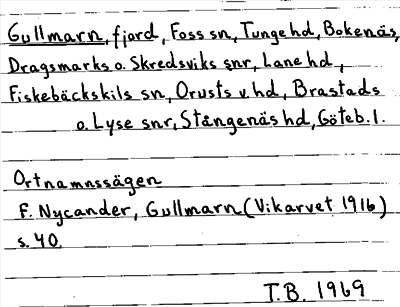 Gullmarn, fjord, Foss sn, Tunge hd, Bokenäs,
Dragsmarks o. Skredsviks snr, Lane hd,
Fiskebäckskils sn, Orusts v. hd, Brastads
o. Lyse snr, Stångenäs hd, Göteb. l.
Ortnamnssägen
F. Nycander, Gullmarn (Vikarvet 1916)
s. 40.
T.B. 1969